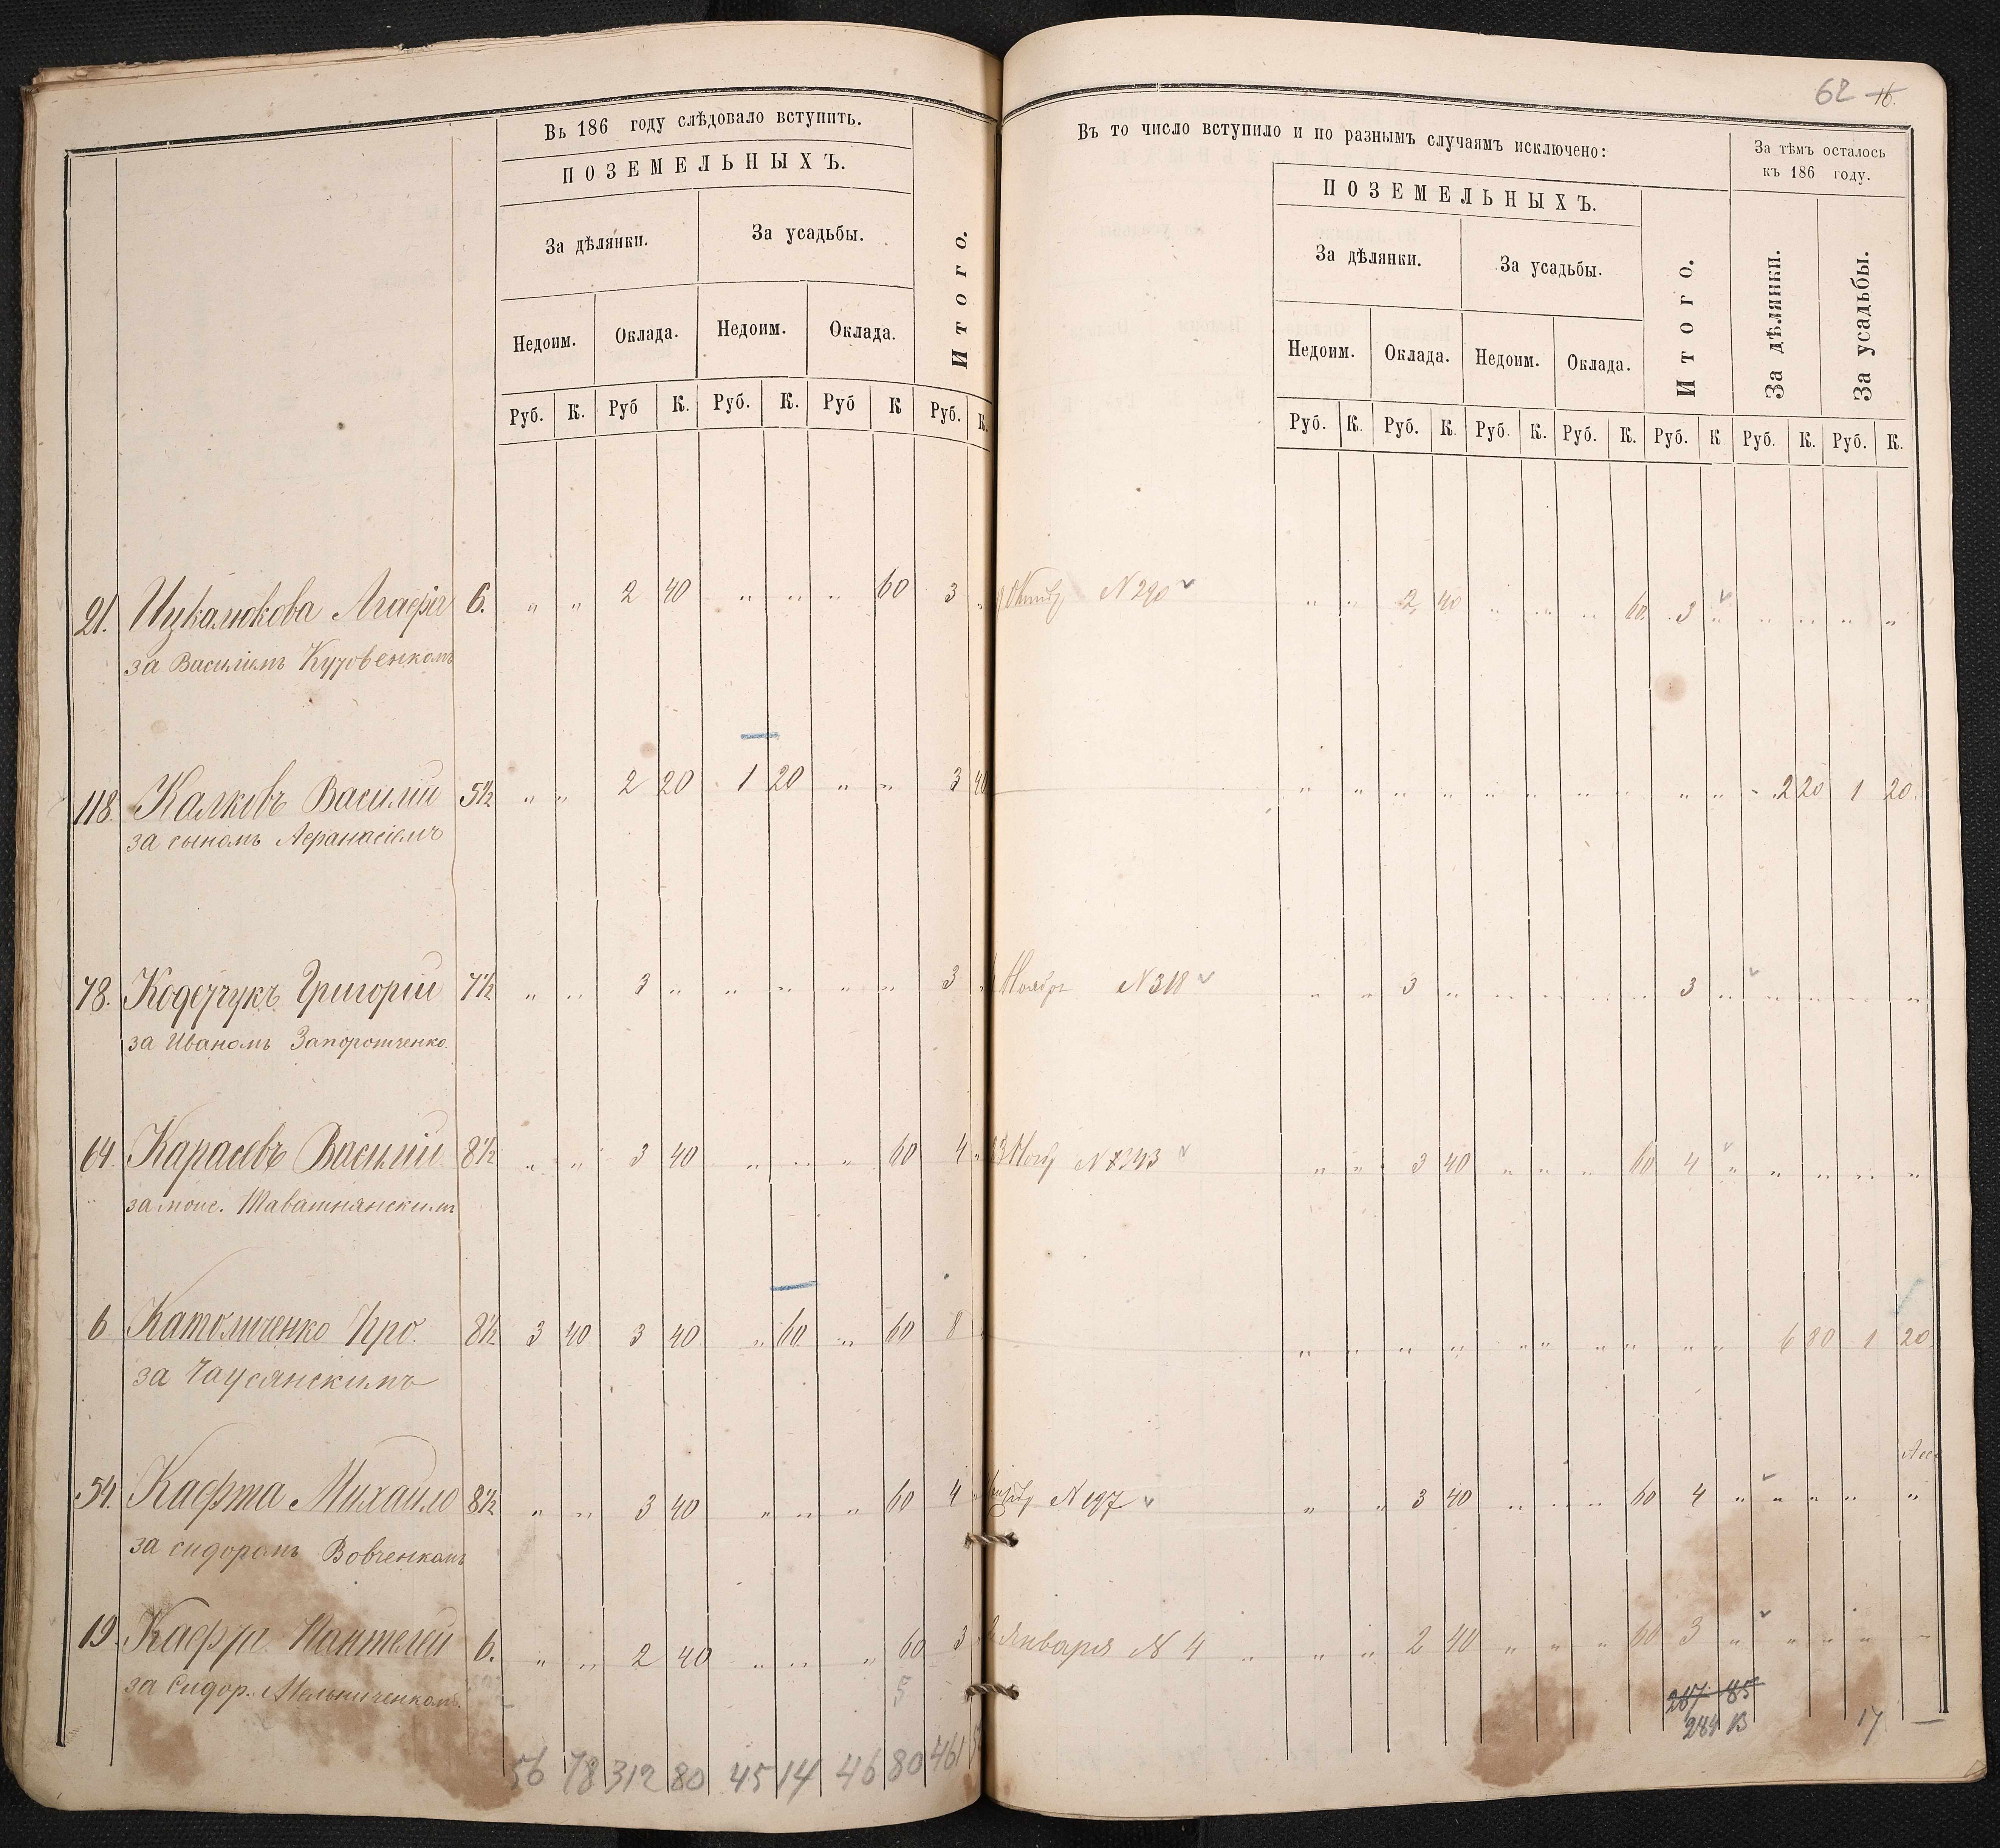 Въ 186 году слѣдовало вступить.
ПОЗЕМЕЛЬНЫХЪ.
За дѣлянки. За усадьбы. Итого.
Недоим. Оклада. Недоим. Оклада.
Руб. К. Руб К. Руб. К. Руб К Руб. К.
21. Агафія 6. „ „ 2 40 „ „ „ 60 3 „
за Василіемъ
118. Калковъ Василій 5½ „ „ 2 20 1 20 „ „ 3 40
за сыномъ Афанасіемъ
78. Григорій 7½ „ „ 3 „ „ „ „ „ 3 „
за Иваномъ
64. Карасевъ Василій 8½ „ „ 3 40 „ „ „ 60 4 „
за моис.
6 Католиченко 8½ 3 40 3 40 „ 60 „ 60 8
за Чаусянскимъ
54. Кафта Михайло 8½ „ „ 3 40 „ „ „ 60 4
за сидоромъ Вовченкомъ
19. Пантелей 6. „ „ 2 40 „ „ „ 60 3
за Сидор. Мельниченком.
5
56 78 312 80 45 14 46 80 461
62 16.
Въ то число вступило и по разнымъ случаямъ исключено:
За тѣмъ осталось
къ 186 году.
ПОЗЕМЕЛЬНЫХЪ.
За дѣлянки. За усадьбы. Итого. За дѣлянки. За усадьбы.
Недоим. Оклада. Недоим. Оклада.
Руб. К. Руб. К. Руб. К. Руб. К. Руб. К Руб. К. Руб. К.
N 290 „ „ 2 40 „ „ „ 60 3 „ „ „ „ „
„ „ „ „ „ „ „ „ „ „ 2 20 1 20.
Ноября N 318 „ „ 3 „ „ „ „ „ 3 „ „ „ „ „
„ „ 3 40 „ „ „ 60 4 „ „ „ „ „
„ „ „ „ „ „ „ „ „ „ 6 80 1 20
N 197 „ „ 3 40 „ „ „ 60 4 „ „ „ „ „
Января N 4 „ „ 2 40 „ „ „ 60 3 „ „ „ „ „
267 85
17 —